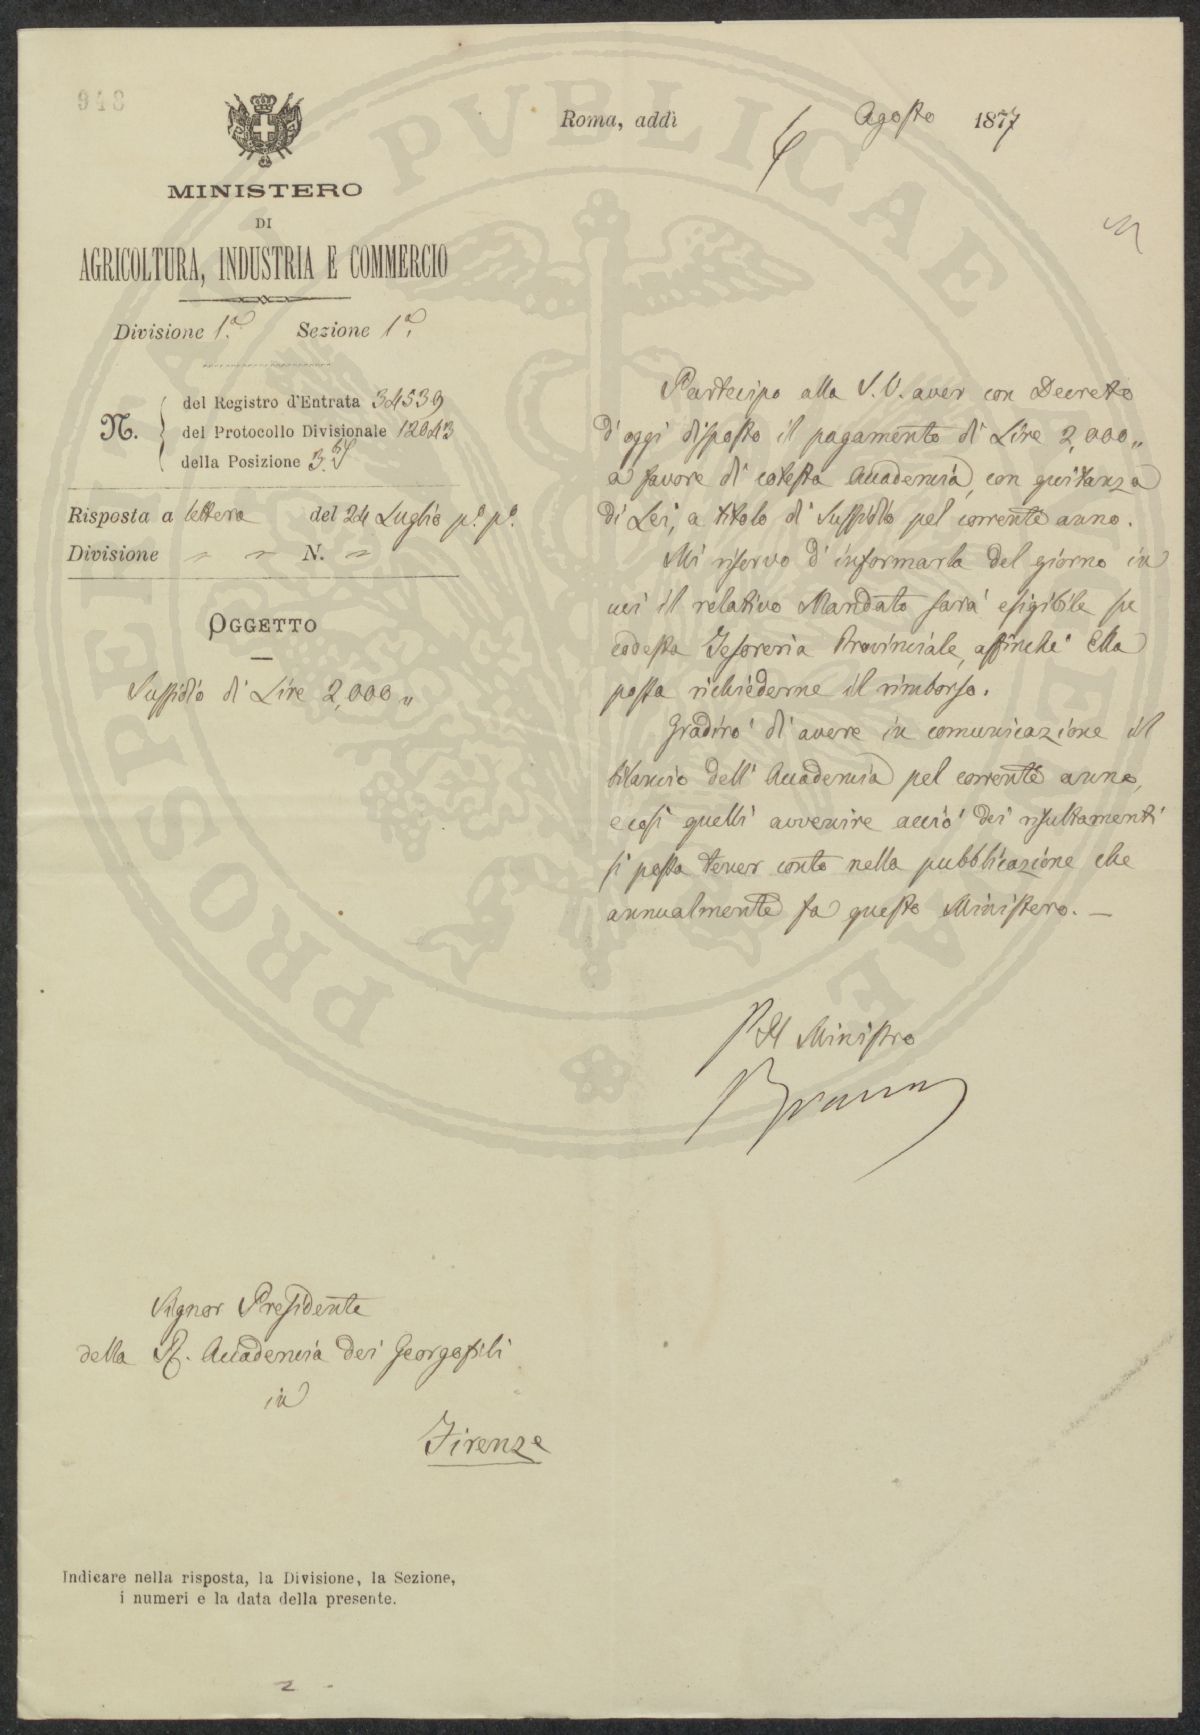 948
MINISTERO
DI
AGRICOLTURA, INDUSTRIA E COMMERCIO
Divisione 1.ª Sezione 1.ª
N.
del Registro d'Entrata 34539
del Protocollo Divisionale 12043
della Posizione 3.
Risposta a lettera del 24 Luglio p.º p.º
Divisione " " N. "
OGGETTO
Sussidio di Lire 2,000 "
Roma, addì 6 Agosto 1877
Partecipo alla S. V. aver con Decreto
d'oggi disposto il pagamento di Lire 2,000 "
a favore di cotesta Accademia, con quitanza
di Lei, a titolo di sussidio pel corrente anno.
Mi riservo d'informarla del giorno in
cui il relativo Mandato sarà esigibile
codesta Tesoreria Provinciale, affinchè Ella
possa richiederne il rimborso.
Gradirò di avere in comunicazione il
bilancio dell'Accademia pel corrente anno,
e così quelli avvenire acciò dei risultamenti
si possa tener conto nella pubblicazione che
annualmente fa questo Ministero. —
Pel Ministro
Signor Presidente
della R. Accademia dei Georgofili
in
Firenze
Indicare nella risposta, la Divisione, la Sezione,
i numeri e la data della presente.
PROSPERITATI PVBLICAE